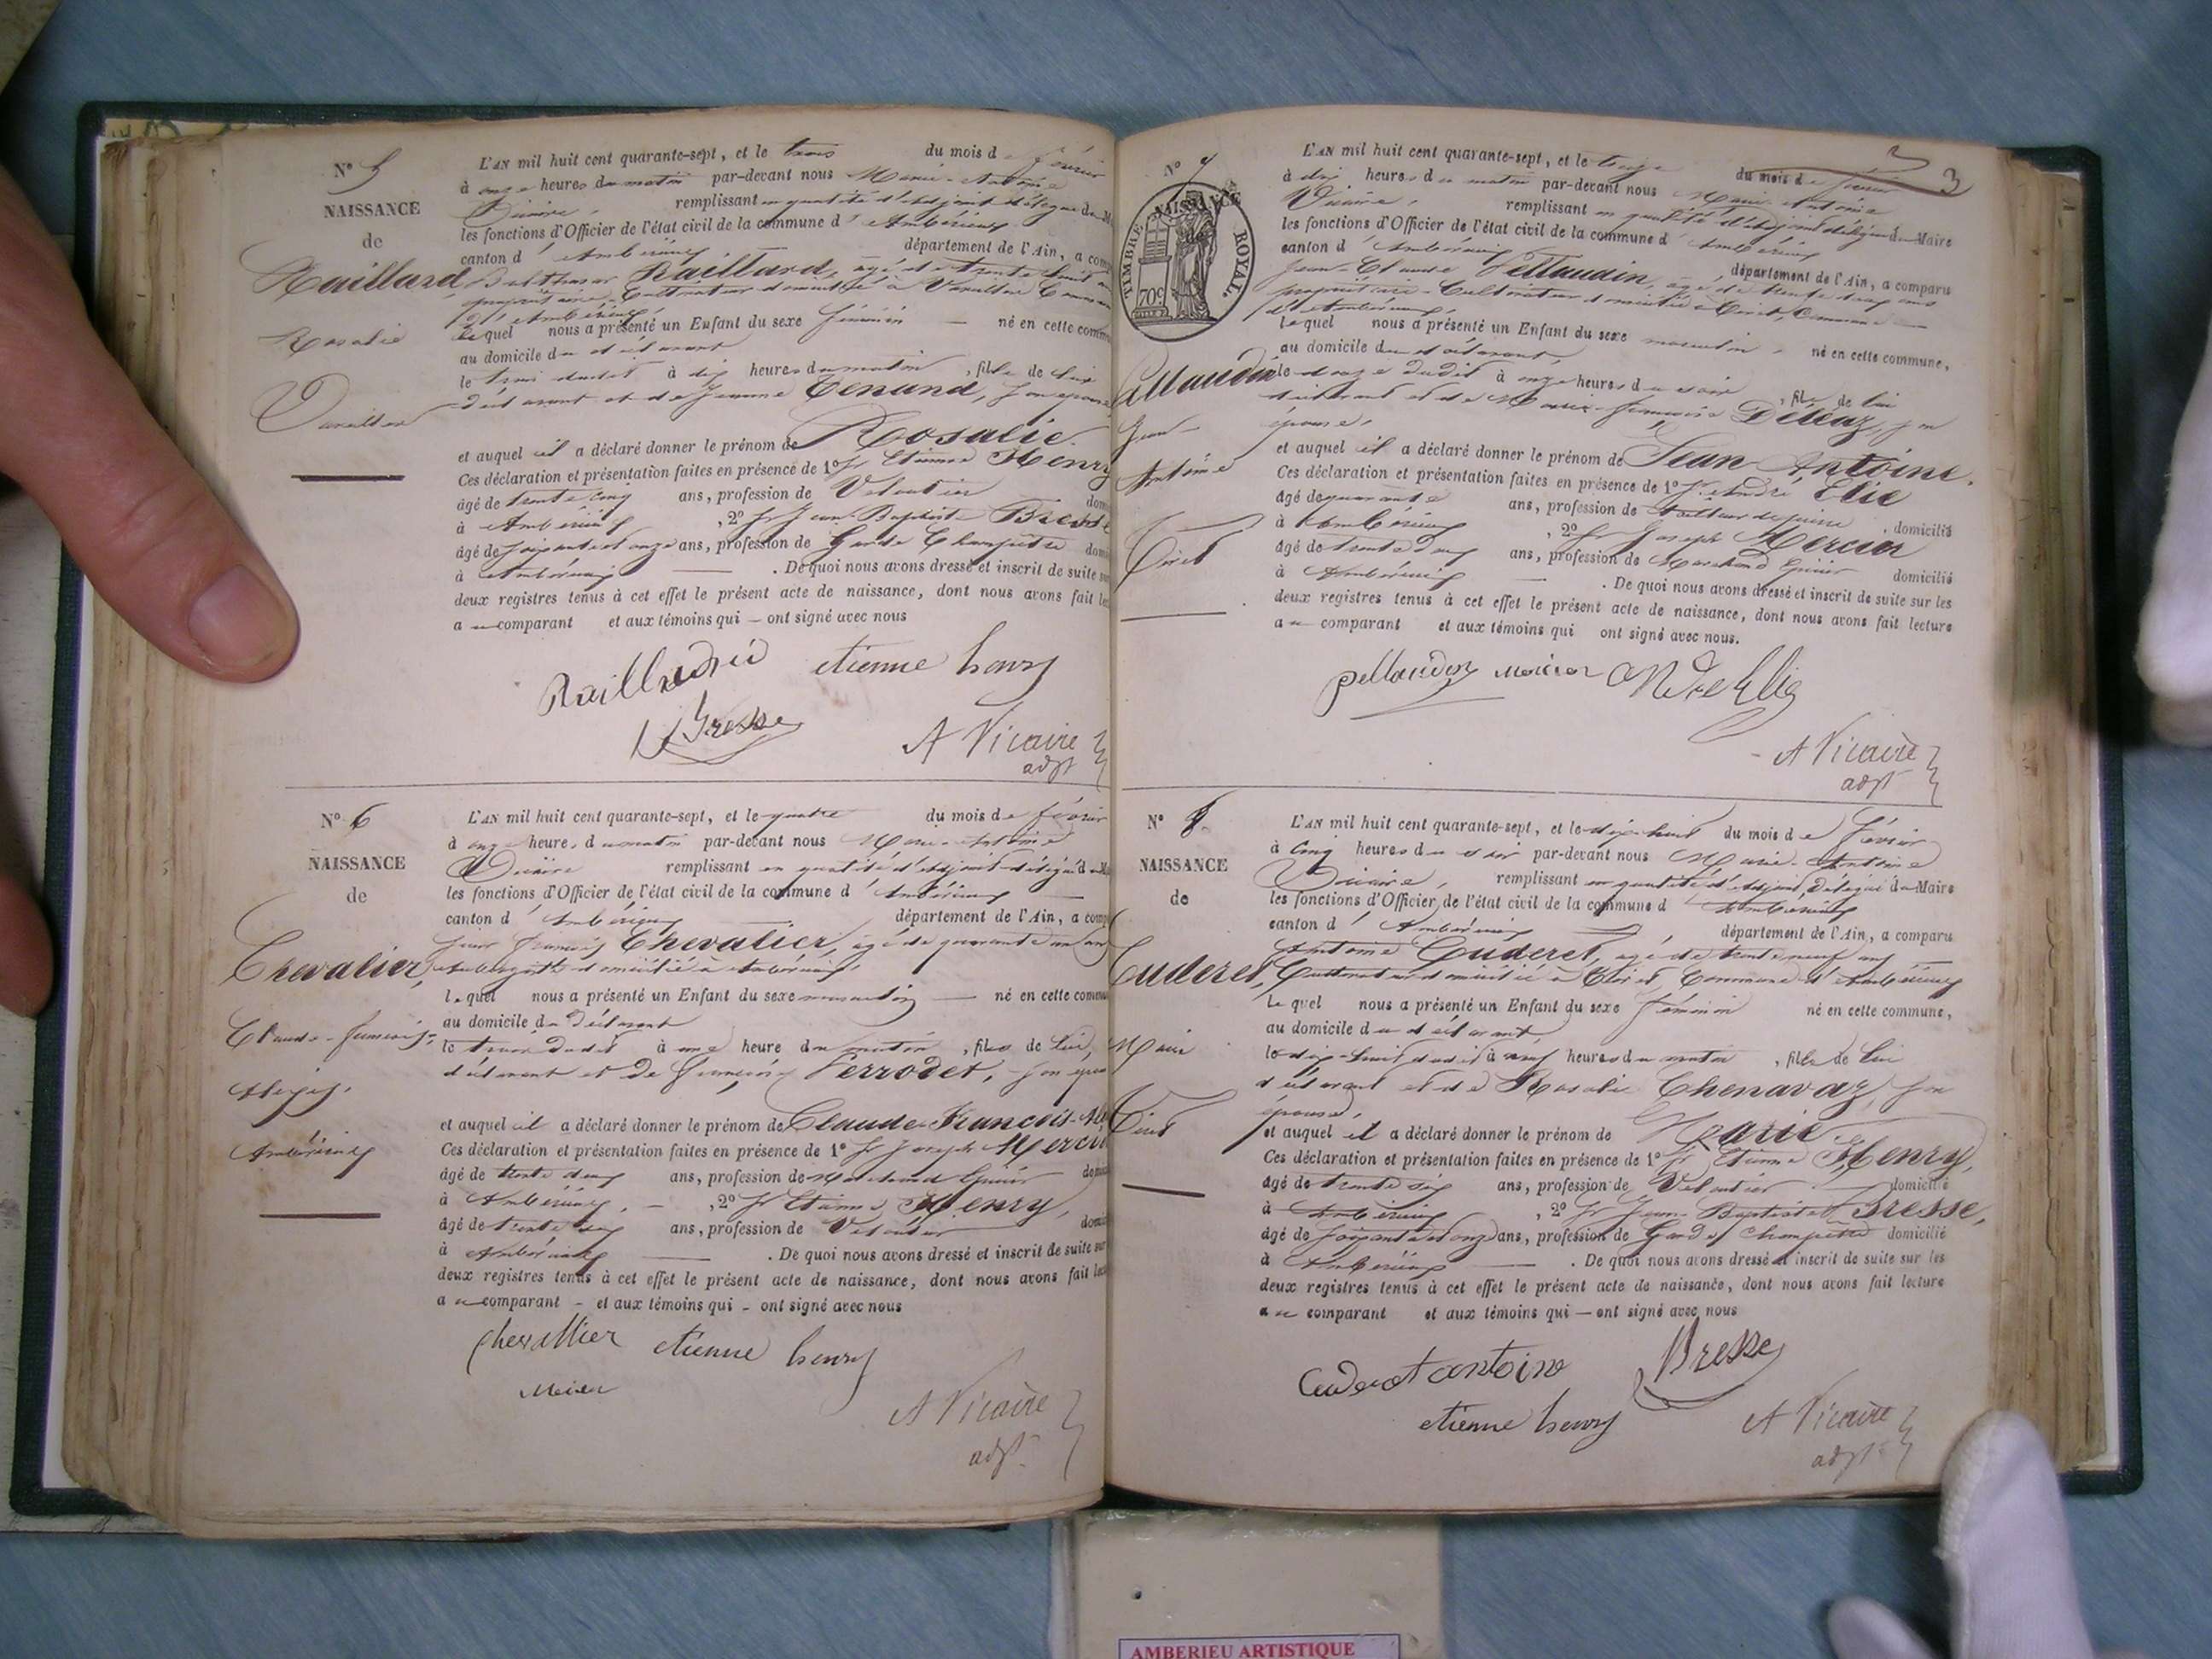 N° 5
NAISSANCE
de
Raillard
Rosalie
Vareilles
L'AN mil huit cent quarante-sept, et le trois du mois de février
à onze heures du matin par-devant nous Marie-Antoine
Vicaire, remplissant en qualité d'adjoint délégué du
les fonctions d'Officier de l'état civil de la commune d'Ambérieux
canton d'Ambérieux département de l'Ain, a comp
Balthazar Raillard, âgé de trente huit
propriétaire-Cultivateur domicilié à Vareilles Commune
d'Ambérieux
lequel nous a présenté un Enfant du sexe féminin — né en cette comm
au domicile du déclarant
le trois dudit à dix heures du matin, fille de lui
déclarant et de Jeanne Tenand, son épouse
et auquel il a déclaré donner le prénom de Rosalie.
Ces déclaration et présentation faites en présence de 1° Sr Etienne Henry
âgé de trente cinq ans, profession de Veloutier dom
à Ambérieux, 2° Sr Jean-Baptiste Bresse
âgé de soixante et onze ans, profession de Garde Champêtre dom
à Ambérieux — . De quoi nous avons dressé et inscrit de suite su
deux registres tenus à cet effet le présent acte de naissance, dont nous avons fait le
au comparant et aux témoins qui — ont signé avec nous
etienne henry
Bresse
A Vicaire
adjt
N° 6
NAISSANCE
de
Chevalier,
Claude-François-
Alexis.
Ambérieux
L'AN mil huit cent quarante-sept, et le quatre du mois de février
à onze heures du matin par-devant nous Marie-Antoine
Vicaire remplissant en qualité d'adjoint délégué du
les fonctions d'Officier de l'état civil de la commune d'Ambérieux
canton d'Ambérieux département de l'Ain, a comp
Jean François Chevalier, âgé de quarante un ans
Aubergiste domicilié à Ambérieux,
lequel nous a présenté un Enfant du sexe masculin — né en cette commu
au domicile du déclarant
le trois dudit à une heure du matin, fils de lui,
déclarant et de Françoise Perrodet, son épou
et auquel il a déclaré donner le prénom de Claude-François-Al
Ces déclaration et présentation faites en présence de 1° Sr Joseph Mercie
âgé de trente deux ans, profession de Marchand Epicier domi
à Ambérieux, — , 2° Sr Etienne Henry,
âgé de trente six ans, profession de Veloutier domi
à Ambérieux — . De quoi nous avons dressé et inscrit de suite sur
deux registres tenus à cet effet le présent acte de naissance, dont nous avons fait lec
au comparant - et aux témoins qui - ont signé avec nous
chevallier etienne henry
Mercier
A Vicaire
adjt
N° 7
NAISSANCE
TIMBRE ROYAL.
70c
Pellaudin
Jean-
Antoine
Tiret
3
L'AN mil huit cent quarante-sept, et le treize du mois de février
à dix heures du matin par-devant nous Marie Antoine
Vicaire, remplissant en qualité d'adjoint délégué du Maire
les fonctions d'Officier de l'état civil de la commune d'Ambérieux
canton d'Ambérieux département de l'Ain, a comparu
Jean-Claude Pellaudin, âgé de trente deux ans
propriétaire-Cultivateur domicilié à Tiret, Commune —
d'Ambérieux,
lequel nous a présenté un Enfant du sexe masculin, né en cette commune,
au domicile du déclarant,
le douze dudit à onze heures du soir, fils de lui
déclarant et de Marie-Françoise Déléaz, son
épouse,
et auquel il a déclaré donner le prénom de Jean Antoine.
Ces déclaration et présentation faites en présence de 1° Sr André Elie
âgé de quarante ans, profession de tailleur de pierre, domicilié
à Ambérieux, 2° Sr Joseph Mercier
âgé de trente deux ans, profession de Marchand Epicier domicilié
à Ambérieux — . De quoi nous avons dressé et inscrit de suite sur les
deux registres tenus à cet effet le présent acte de naissance, dont nous avons fait lecture
au comparant et aux témoins qui ont signé avec nous.
pellaudin mercier andre Elie
A Vicaire
adjt
N° 8.
NAISSANCE
de
Cuderet,
Marie
Tiret
L'AN mil huit cent quarante-sept, et le dix-huit du mois de Février
à cinq heures du soir par-devant nous Marie-Antoine
Vicaire, remplissant en qualité d'adjoint délégué du Maire
les fonctions d'Officier de l'état civil de la commune d'Ambérieux
canton d'Ambérieux département de l'Ain, a comparu
Antoine Cuderet, âgé de trente neuf ans —
Cultivateur domicilié à Tiret, Commune d'Ambérieux
lequel nous a présenté un Enfant du sexe féminin né en cette commune,
au domicile du déclarant,
le dix-huit dudit à neuf heures du matin, fille de lui
déclarant et de Rosalie Chenavaz, son
épouse,
et auquel il a déclaré donner le prénom de Marie.
Ces déclaration et présentation faites en présence de 1° Sr Etienne Henry,
âgé de trente six ans, profession de Veloutier domicilié
à Ambérieux, 2° Sr Jean-Baptiste Bresse,
âgé de soixante et onze ans, profession de Garde Champêtre domicilié
à Ambérieux — . De quoi nous avons dressé et inscrit de suite sur les
deux registres tenus à cet effet le présent acte de naissance, dont nous avons fait lecture
au comparant et aux témoins qui — ont signé avec nous
Cuderet antoine Bresse
etienne henry
A Vicaire
adjt
AMBERIEU ARTISTIQUE